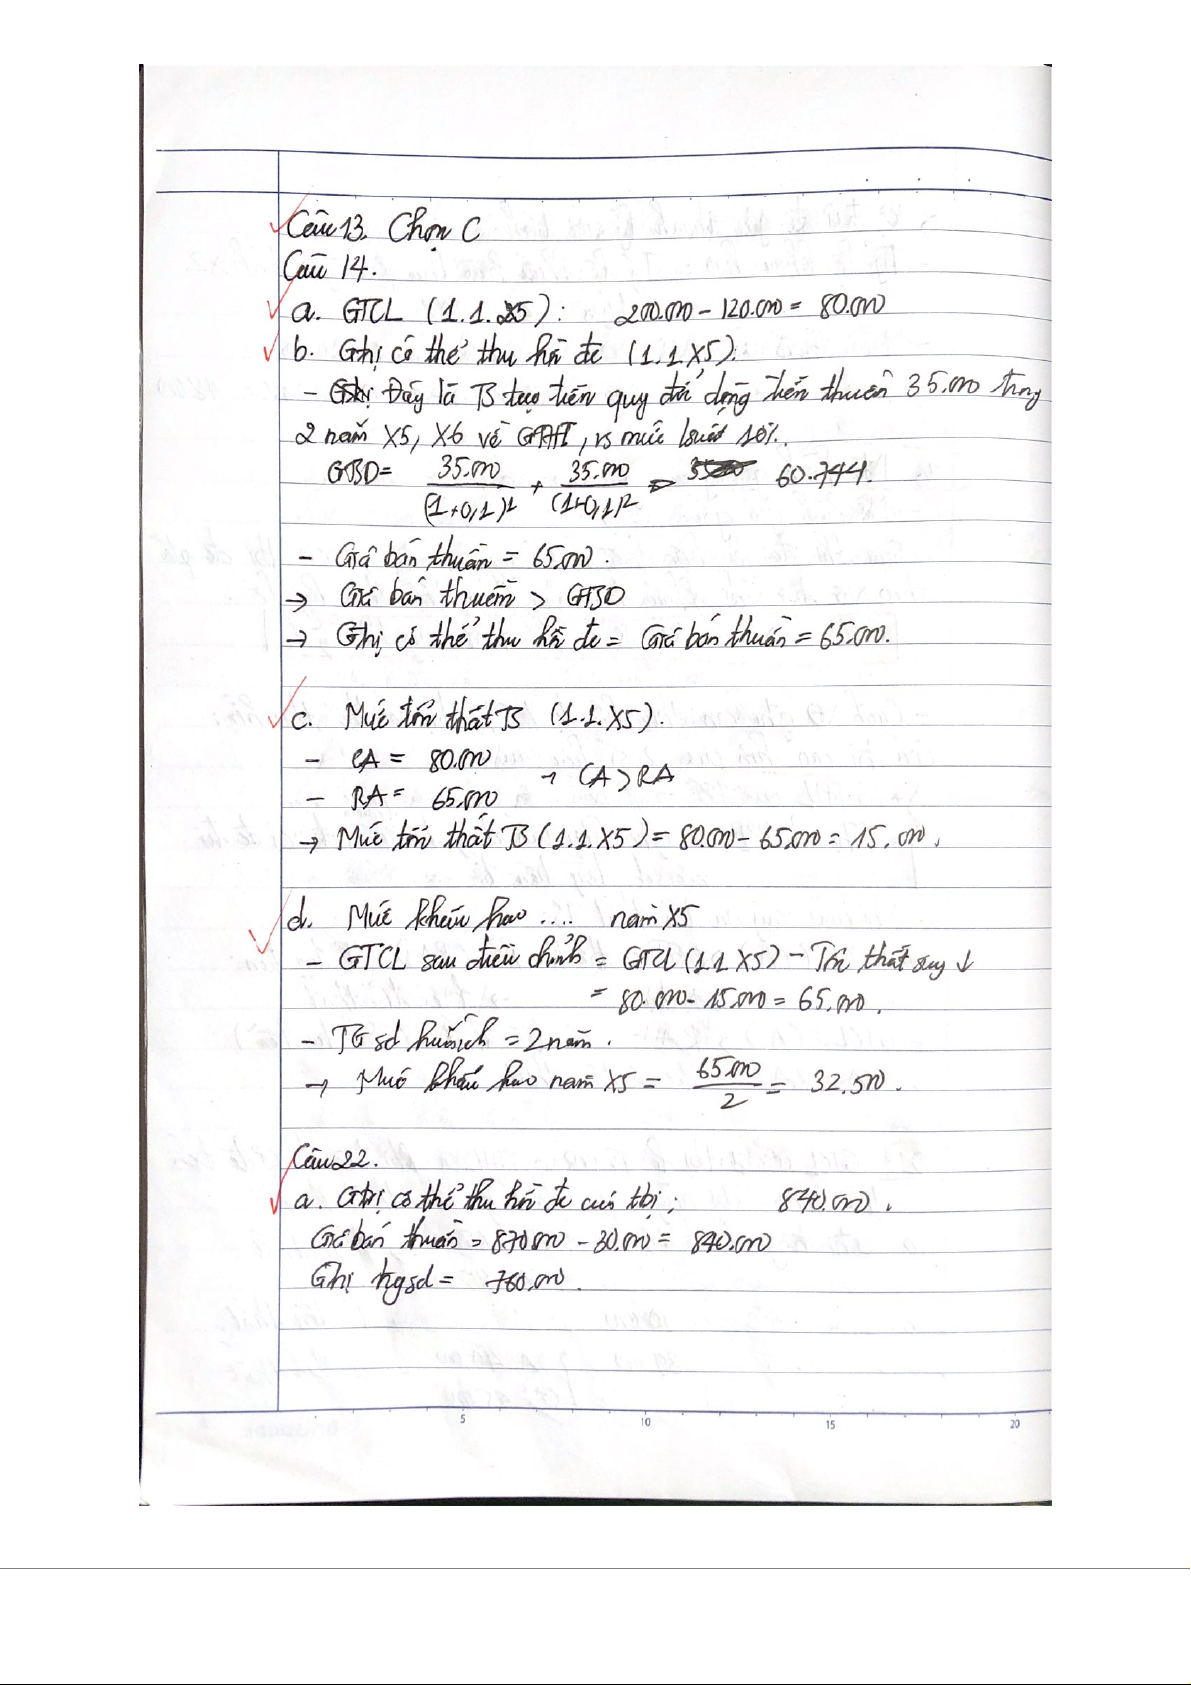 Câu 13. Chọn C
Câu 14.
a. GTCL (1.1.X5): 200.000 - 120.000 = 80.000
b. Ghị có thể thu hồi đc (1.1.X5).
- Đây là TB tạo tiền quy đổi dòng tiền thuần 35.000 trong
2 năm X5, X6 về GTHT, vs mức lsuất 10%.
GTSD = 35.000/(1+0,1)^1 + 35.000/(1+0,1)^2 = 60.744.
- Giá bán thuần = 65.000.
→ Giá bán thuần > GTSD
→ Ghị có thể thu hồi đc = Giá bán thuần = 65.000.
c. Mức tổn thất TB (1.1.X5).
- CA = 80.000
→ CA > RA
- RA = 65.000
→ Mức tổn thất TB (1.1.X5) = 80.000 - 65.000 = 15.000.
d. Mức khấu hao .... năm X5
- GTCL sau điều chỉnh = GTCL (1.1.X5) - Tổn thất suy ↓
= 80.000 - 15.000 = 65.000.
- TG sd hữu ích = 2 năm.
→ Mức khấu hao năm X5 = 65.000/2 = 32.500.
Câu 22.
a. Gtrị có thể thu hồi đc của tbị: 840.000.
Giá bán thuần = 870.000 - 30.000 = 840.000
Ghị tgsd = 760.000.
5 10 15 20